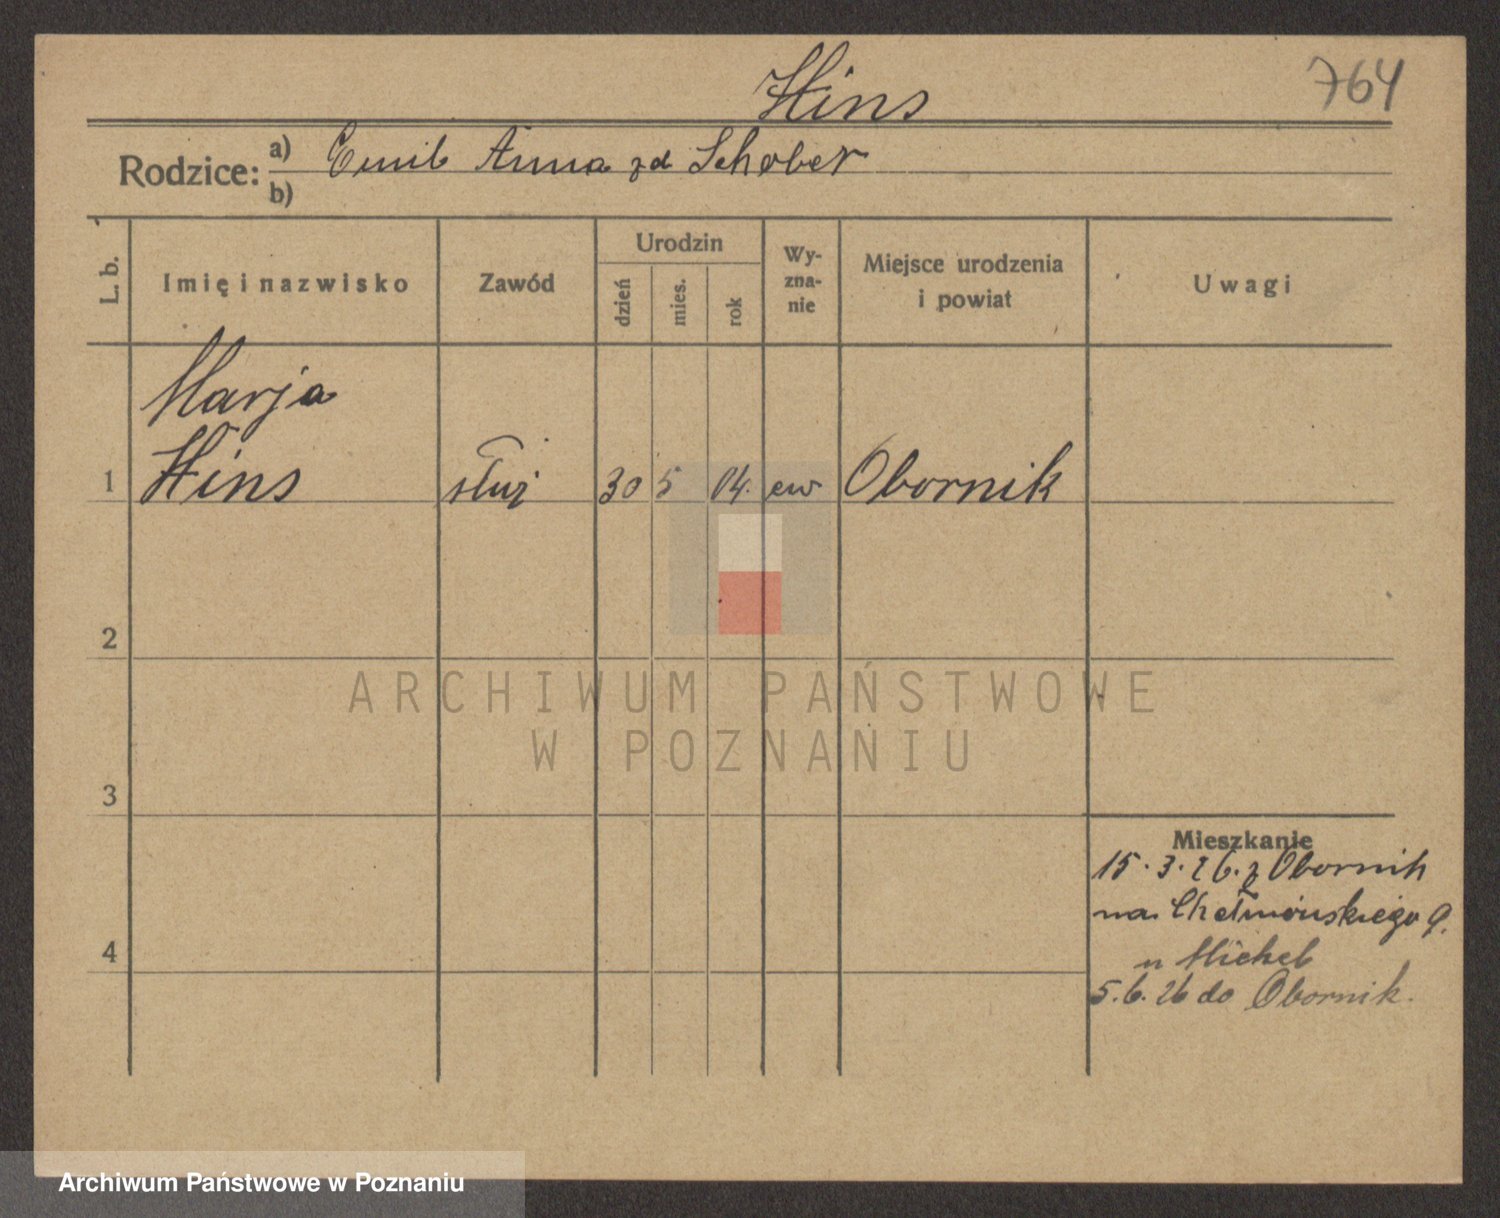 Hins
764
Rodzice: a) Emil Anna zd Schober
b)
L. b.
Imię i nazwisko
Zawód
Urodzin
dzień
mies.
rok
Wy-
zna-
nie
Miejsce urodzenia
i powiat
Uwagi
Marja
1 Hins służ 30 5 04. ew Obornik
2
3
4
Mieszkanie
15.3.26. z Obornik
na Chełmońskiego 9.
u Michel
5.6.26 do Obornik.
ARCHIWUM PAŃSTWOWE
W POZNANIU
Archiwum Państwowe w Poznaniu